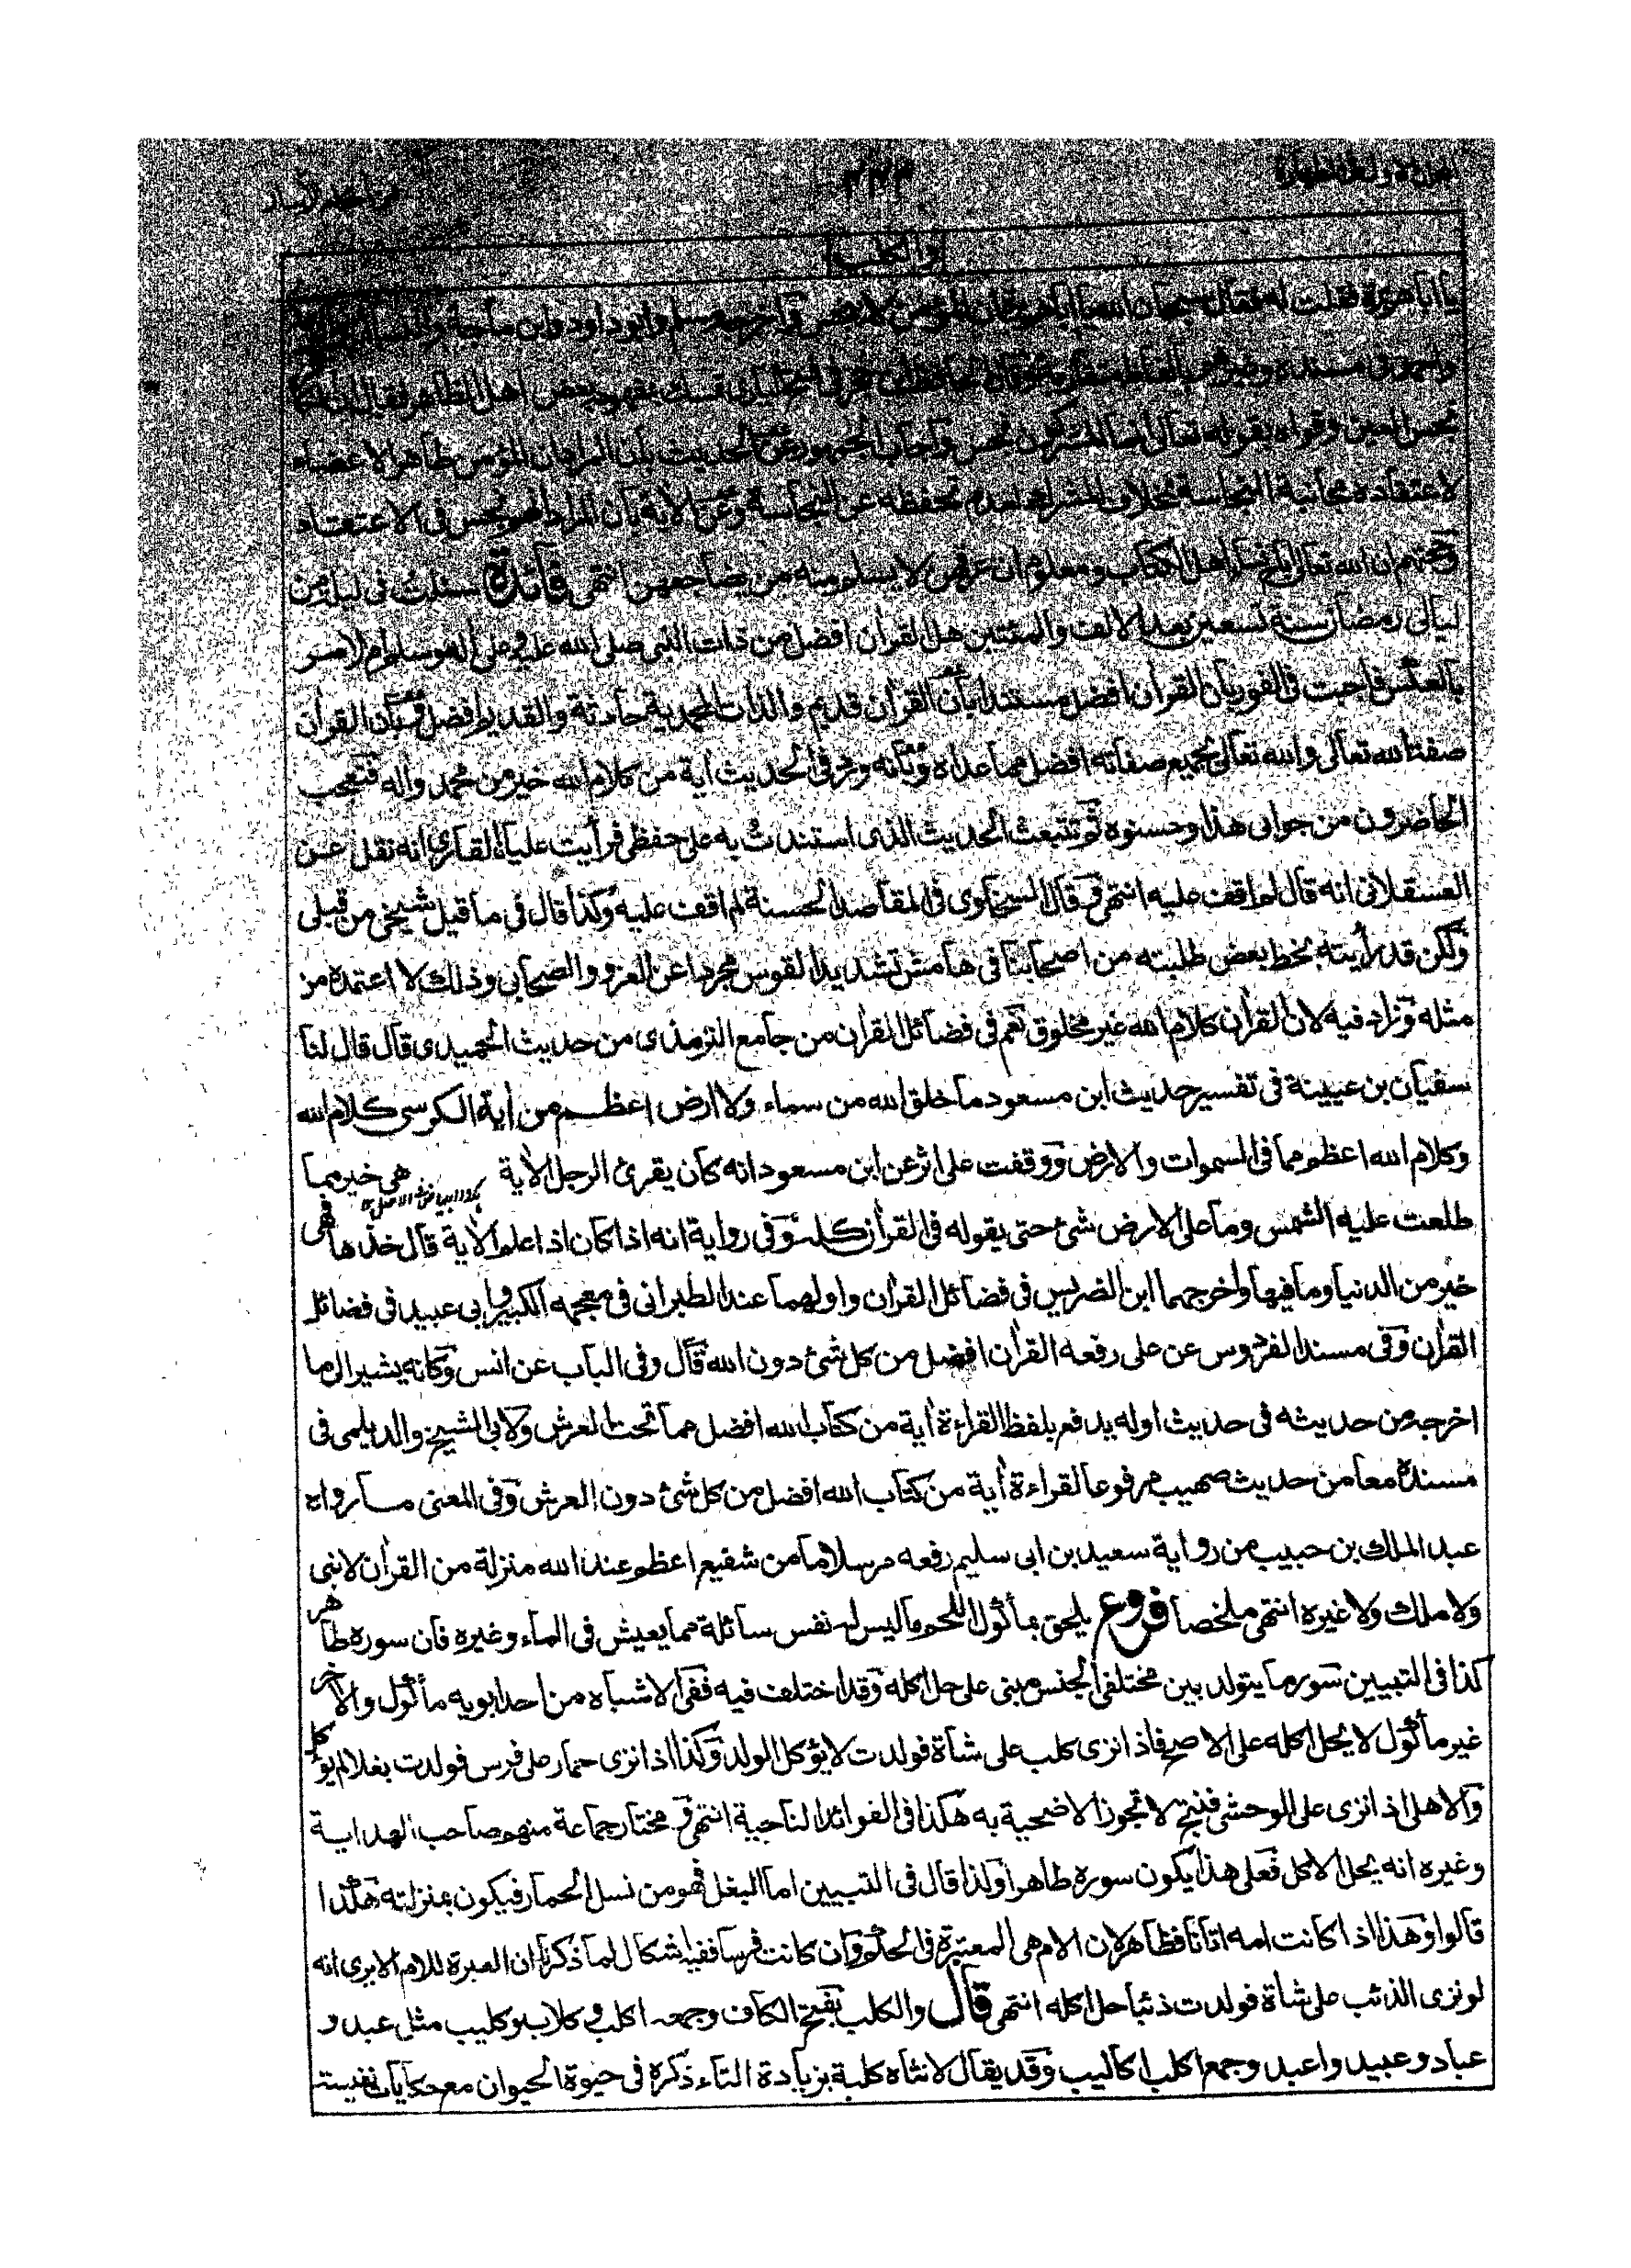 والكلب
يا ابا هريرة فقلت له فقال سبحان الله يا ابا هريرة ان المؤمن لا ينجس واخرجه مسلم وابو داود وابن ماجة
واحمد في مسنده وغيرهم بالفاظ متقاربة قال الحافظ ابن حجر في فتح الباري تمسك بمفهومه بعض اهل الظاهر فقال ان الكافر
نجس العين وقواه بقوله تعالى انما المشركون نجس واجاب الجمهور عن الحديث بان المراد ان المؤمن طاهر الاعضاء
لاعتقاده مجانبة النجاسة بخلاف المشرك لعدم تحفظه عن النجاسة وعن الآية بان المراد انهم نجس في الاعتقاد
وحجتهم ان الله تعالى اباح نساء اهل الكتاب ومعلوم ان عرقهن لا يسلم منه من يضاجعهن انتهى فائدة سئلت في ليلة من
ليالي رمضان سنة تسعين بعد الالف والمئتين هل القرآن افضل من ذات النبي صلى الله عليه وعلى اله وسلم ام الامر
بالعكس فاجبت في الفور بان القرآن افضل مستندا بان القرآن قديم والذات المحمدية حادثة والقديم افضل وبان القرآن
صفة الله تعالى والله تعالى بجميع صفاته افضل مما عداه وبانه ورد في الحديث آية من كلام الله خير من محمد واله فتعجب
الحاضرون من جوابي هذا وحسنوه ثم تتبعت الحديث الذي استندت به على حفظي فرأيت عليا القاري انه نقل عن
العسقلاني انه قال لم اقف عليه انتهى وقال السخاوي في المقاصد الحسنة لم اقف عليه وكذا قال في ما قيل شيخي من قبلي
ولكن قد رأيته بخط بعض طلبته من اصحابنا في هامش تشديد القوس مجردا عن العزو والصحابي وذلك لا اعتمده من
مثله وزاد فيه لان القرآن كلام الله غير مخلوق نعم في فضائل القرآن من جامع الترمذي من حديث الحميدي قال قال لنا
سفيان بن عيينة في تفسير حديث ابن مسعود ما خلق الله من سماء ولا ارض اعظم من آية الكرسي كلام الله
وكلام الله اعظم مما في السموات والارض ووقفت على اثر عن ابن مسعود انه كان يقرئ الرجل الآية هي خير مما
طلعت عليه الشمس وما على الارض شئ حتى يقوله في القرآن كله وفي رواية انه اذا كان اذا علم الآية قال خذها فهي
خير من الدنيا وما فيها واخرجهما ابن الضريس في فضائل القرآن واولهما عند الطبراني في معجمه الكبير وابي عبيد في فضائل
القرآن وفي مسند الفردوس عن علي رفعه القرآن افضل من كل شئ دون الله قال وفي الباب عن انس وكانه يشير الى ما
اخرجه من حديثه في حديث اوله يدفع بلفظ القراءة آية من كتاب الله افضل مما تحت العرش ولابي الشيخ والديلمي في
مسنده معا من حديث صهيب مرفوعا لقراءة آية من كتاب الله افضل من كل شئ دون العرش وفي المعنى ما رواه
عبد الملك بن حبيب من رواية سعيد بن ابي سليم رفعه مرسلا ما من شفيع اعظم عند الله منزلة من القرآن لا نبي
ولا ملك ولا غيره انتهى ملخصا فروع يلحق بمأكول اللحم ما ليس له نفس سائلة مما يعيش في الماء وغيره فان سوره طاهر
كذا في التبيين سور ما يتولد بين مختلفي الجنس مبني على حل اكله وقد اختلف فيه ففي الاشباه من احد ابويه مأكول والآخر
غير مأكول لا يحل اكله على الاصح فاذا نزى كلب على شاة فولدت لا يؤكل الولد وكذا اذا نزى حمار على فرس فولدت بغلا لم يؤكل
والاهلي اذا نزى على الوحشي فنتج لا تجوز الاضحية به هكذا في الفوائد التاجية انتهى ومختار جماعة منهم صاحب الهداية
وغيره انه يحل الاكل فعلى هذا يكون سوره طاهرا ولذا قال في التبيين اما البغل فهو من نسل الحمار فيكون بمنزلته هكذا
قالوا وهذا اذا كانت امه اتانا فظاهر لان الام هي المعتبرة في الحكم وان كانت فرسا ففيه اشكال لما ذكرنا ان العبرة للام الا يرى انه
لو نزى الذئب على شاة فولدت ذئبا حل اكله انتهى قال والكلب بفتح الكاف وجمعه اكلب وكلاب وكليب مثل عبد و
عباد وعبيد واعبد وجمع اكلب اكاليب وقد يقال لانثاه كلبة بزيادة التاء ذكره في حيوة الحيوان مع حكايات نفيسة